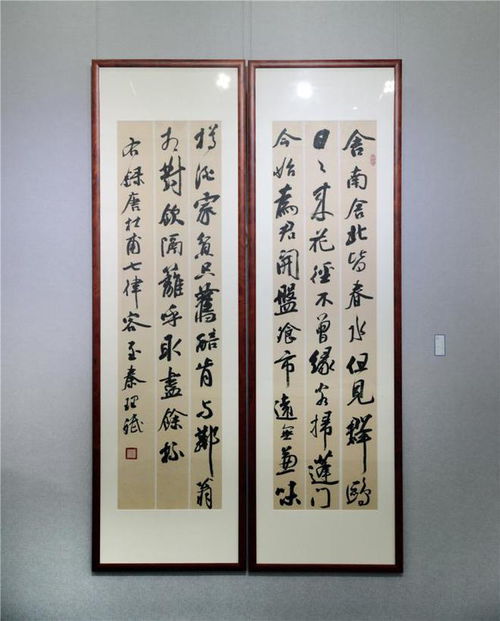 舍南舍北皆春水但見群鷗
日〻來花徑不曾緣客掃蓬门
今始為君開盤飧市遠無兼味
樽酒家貧只舊醅肯与鄰翁
相對飲隔籬呼取盡餘杯
右録唐杜甫七律客至秦理斌